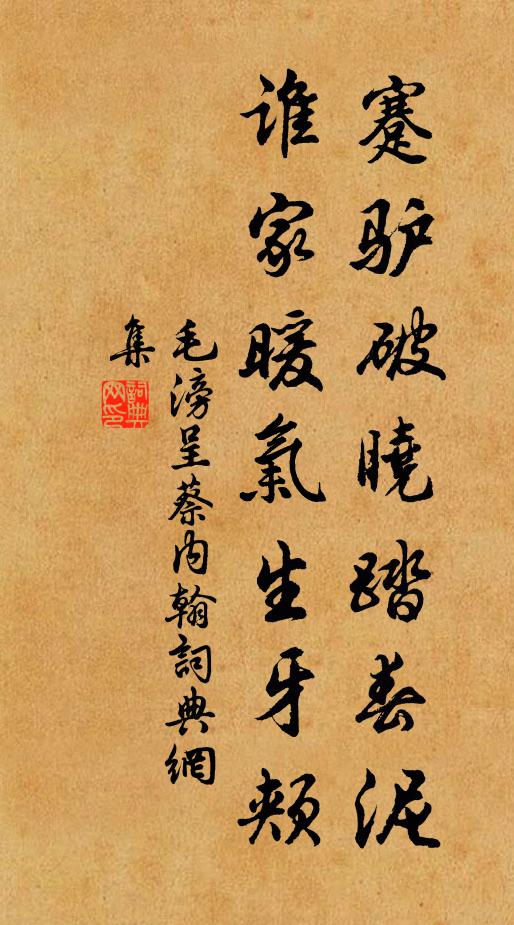 蹇驴破曉踏春泥
誰家暖氣生牙頰
毛滂呈蔡内翰詞典網
集
詞典
网印